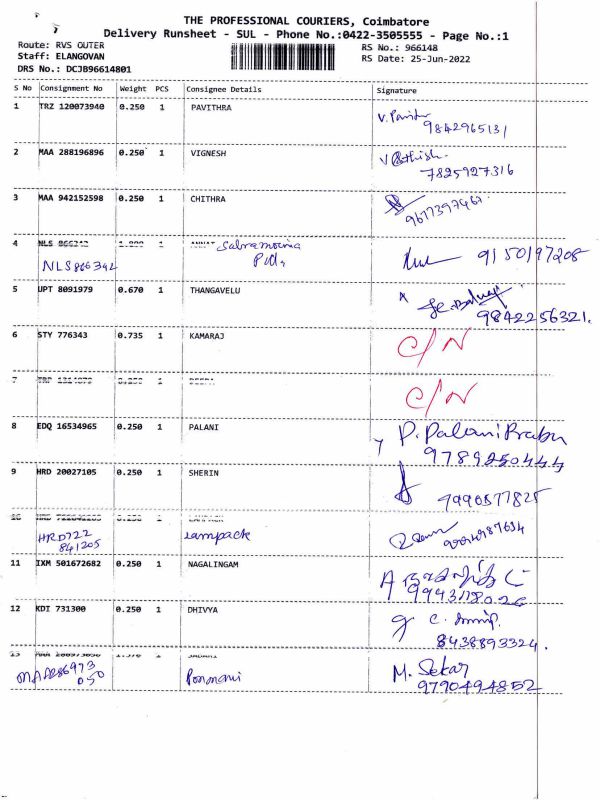 THE PROFESSIONAL COURIERS, Coimbatore
Delivery Runsheet - SUL - Phone No.:0422-3505555 - Page No.:1
Route: RVS OUTER RS No.: 966148
Staff: ELANGOVAN RS Date: 25-Jun-2022
DRS No.: DCJB96614801
S No Consignment No Weight PCS Consignee Details Signature
1 TRZ 120073940 0.250 1 PAVITHRA
9842965131
2 MAA 288196896 0.250 1 VIGNESH
7825927316
3 MAA 942152598 0.250 1 CHITHRA
9677397467
4 1
NLS 866342 9150197208
5 UPT 8091979 0.670 1 THANGAVELU
9842256321.
6 STY 776343 0.735 1 KAMARAJ C/N
7 1 C/N
8 EDQ 16534965 0.250 1 PALANI P. Palani Prabu
9789250444
9 HRD 20027105 0.250 1 SHERIN
10 1
HRD722 Lampack
841205
11 IXM 501672682 0.250 1 NAGALINGAM
9943178026
12 KDI 731300 0.250 1 DHIVYA
8438893324.
13 1
MAA286973 Ponmani M. Sekar
050 9790494852